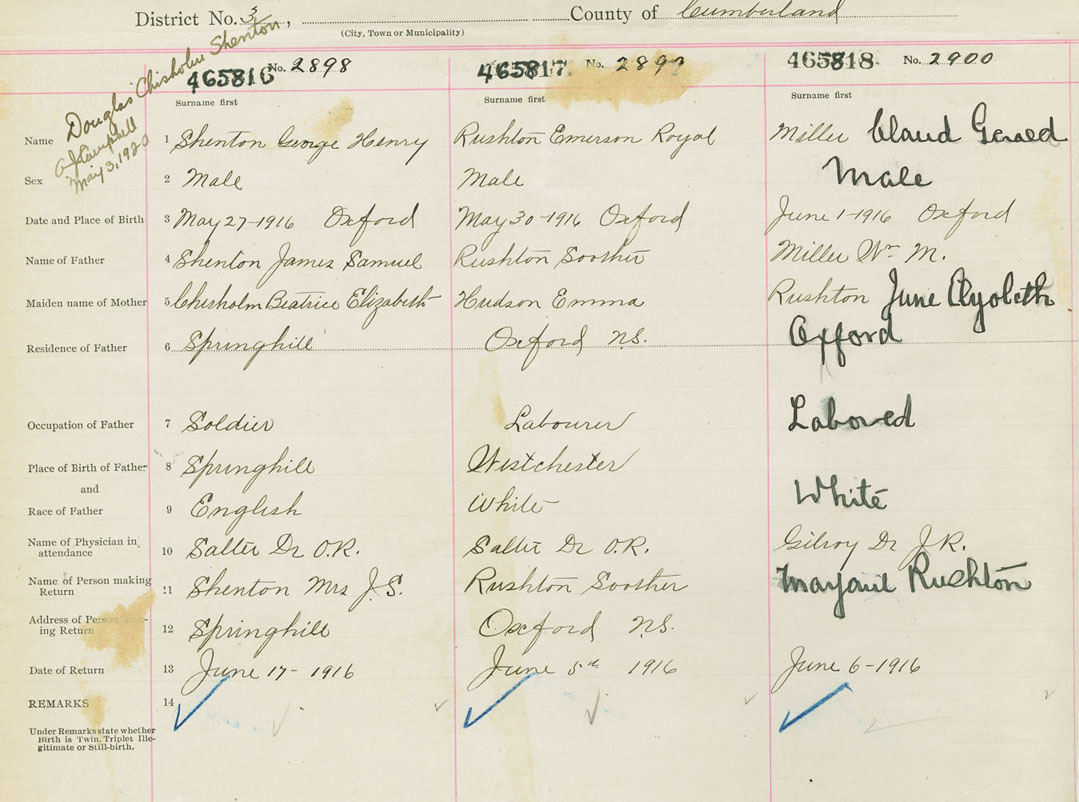 District No. 3, County of Cumberland
(City, Town or Municipality)
Douglas Chisholm Shenton
A J Campbell
May 3, 1920
465816 No. 2898 465817 No. 2899 465818 No. 2900
Surname first Surname first Surname first
Name 1 Shenton George Henry Rushton Emerson Royal Miller Claud Gerald
Sex 2 Male Male Male
Date and Place of Birth 3 May 27-1916 Oxford May 30-1916 Oxford June 1-1916 Oxford
Name of Father 4 Shenton James Samuel Rushton Soother Miller Wm M.
Maiden name of Mother 5 Chisholm Beatrice Elizabeth Hudson Emma Rushton June
Residence of Father 6 Springhill Oxford N.S. Oxford
Occupation of Father 7 Soldier Labourer Labored
Place of Birth of Father 8 Springhill Westchester
and
Race of Father 9 English White White
Name of Physician in
attendance 10 Salter Dr O.R. Salter Dr O.R. Gilroy Dr J.R.
Name of Person making
Return 11 Shenton Mrs J.S. Rushton Soother Rushton
Address of Person mak-
ing Return 12 Springhill Oxford N.S.
Date of Return 13 June 17-1916 June 5th 1916 June 6-1916
REMARKS 14
Under Remarks state whether
Birth is Twin, Triplet Ille-
gitimate or Still-birth.